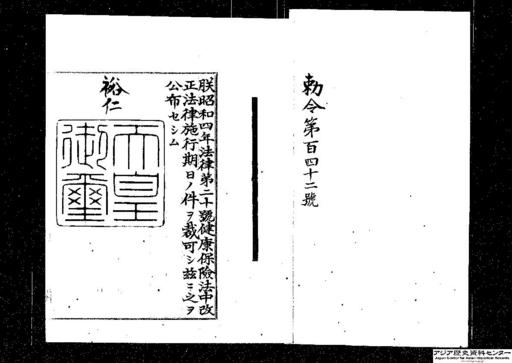 勅令第百四十二號
朕昭和四年法律第二十號健康保險法中改
正法律施行期日ノ件ヲ裁可シ茲ニ之ヲ
公布セシム
裕仁
天皇
御璽
アジア歴史資料センター
Japan Center for Asian Historical Records
http://www.jacar.go.jp/